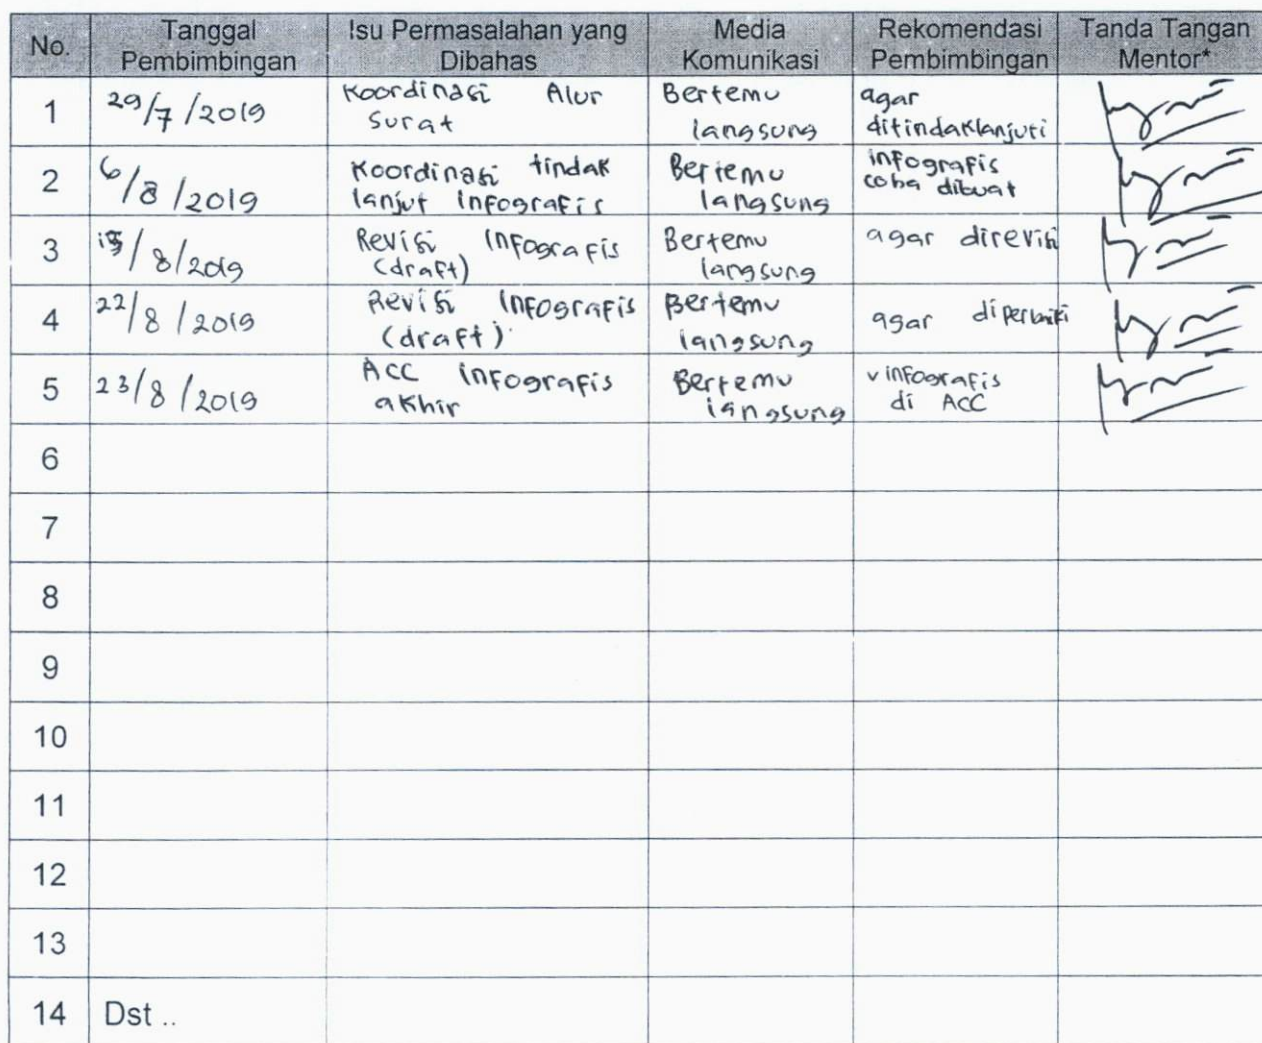 No. Tanggal Pembimbingan Isu Permasalahan yang Dibahas Media Komunikasi Rekomendasi Pembimbingan Tanda Tangan Mentor*
1 29/7/2019 Koordinasi Alur Surat Bertemu langsung agar ditindaklanjuti
2 6/8/2019 Koordinasi tindak lanjut infografis Bertemu langsung infografis coba dibuat
3 /8/2019 Revisi Infografis (draft) Bertemu langsung agar direvisi
4 22/8/2019 Revisi Infografis (draft) Bertemu langsung agar diperbaiki
5 23/8/2019 ACC infografis akhir Bertemu langsung v infografis di ACC
6
7
8
9
10
11
12
13
14 Dst ..